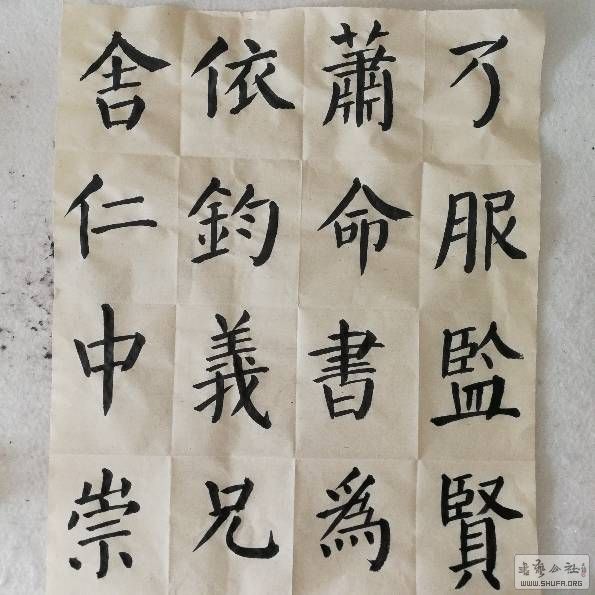 了服監賢
蕭命書爲
依鈞義兄
舍仁中崇
WWW.SHUFA.ORG